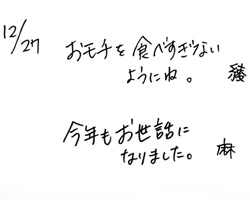 12/27
おモチを食べすぎない
ようにね。
今年もお世話に
なりました。 麻